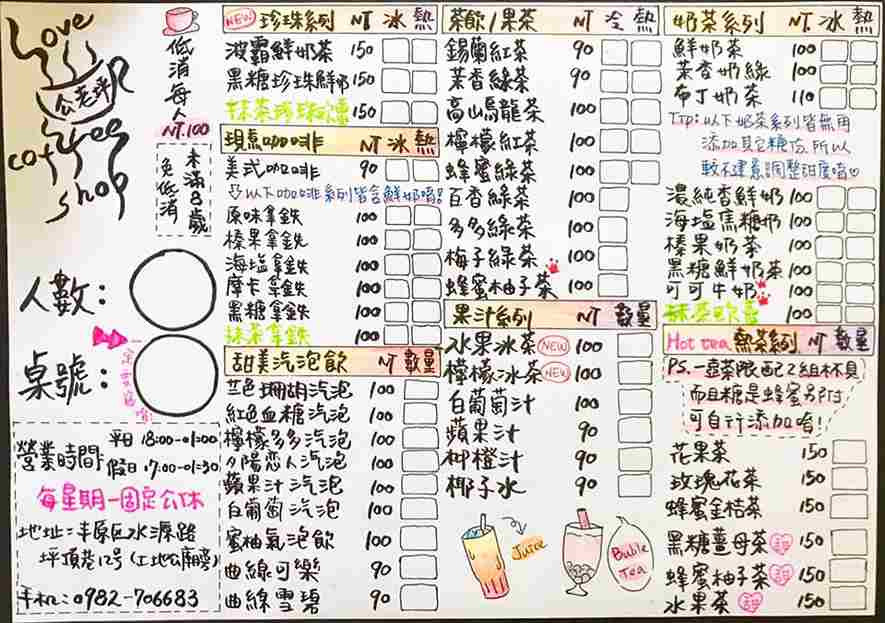 Love
公老坪
coffee
shop
低消每人
NT.100
未滿8歲
免低消
人數:
桌號:
營業時間
平日 18:00-01:00
假日 17:00-01:30
每星期一固定公休
地址:丰原区水源路
坪頂巷12号(土地公廟旁)
手机:0982-706683
NEW 珍珠系列 NT 冰 熱
波霸鮮奶茶 150
黑糖珍珠鮮奶 150
抹茶珍珠欧蕾 150
現煮咖啡 NT 冰 熱
美式咖啡 90
以下咖啡系列皆含鮮奶唷!
原味拿鉄 100
榛果拿鉄 100
海塩拿鉄 100
摩卡拿鉄 100
黑糖拿鉄 100
抹茶拿鉄 100
甜美汽泡飲 NT 數量
兰色珊胡汽泡 100
紅色血糖汽泡 100
檸檬多多汽泡 100
夕陽恋人汽泡 100
蘋果汁汽泡 100
白葡萄汽泡 100
蜜柚氣泡飲 100
曲線可樂 90
曲線雪碧 90
茶飲/果茶 NT 冷 熱
錫蘭紅茶 90
茉香綠茶 90
高山烏龍茶 100
檸檬紅茶 100
蜂蜜綠茶 100
百香綠茶 100
多多綠茶 100
梅子綠茶 100
蜂蜜柚子茶 100
果汁系列 NT 數量
水果冰茶 NEW 100
檸檬冰茶 NEW 100
白葡萄汁 100
蘋果汁 90
柳橙汁 90
椰子水 90
Juice
Buble
Tea
奶茶系列 NT. 冰 熱
鮮奶茶 100
茉香奶綠 100
布丁奶茶 110
Tip:以下奶茶系列皆無用
添加其它糖份,所以
較不建議調整甜度唷
濃純香鮮奶 100
海塩焦糖奶 100
榛果奶茶 100
黑糖鮮奶茶 100
可可牛奶 100
抹茶欧蕾 100
Hot tea 熱茶系列 NT 數量
PS.一壺茶限配2組杯具
而且糖是蜂蜜另附
可自行添加唷!
花果茶 150
玫瑰花茶 150
蜂蜜金桔茶 150
黑糖薑母茶 甜 150
蜂蜜柚子茶 甜 150
水果茶 甜 150